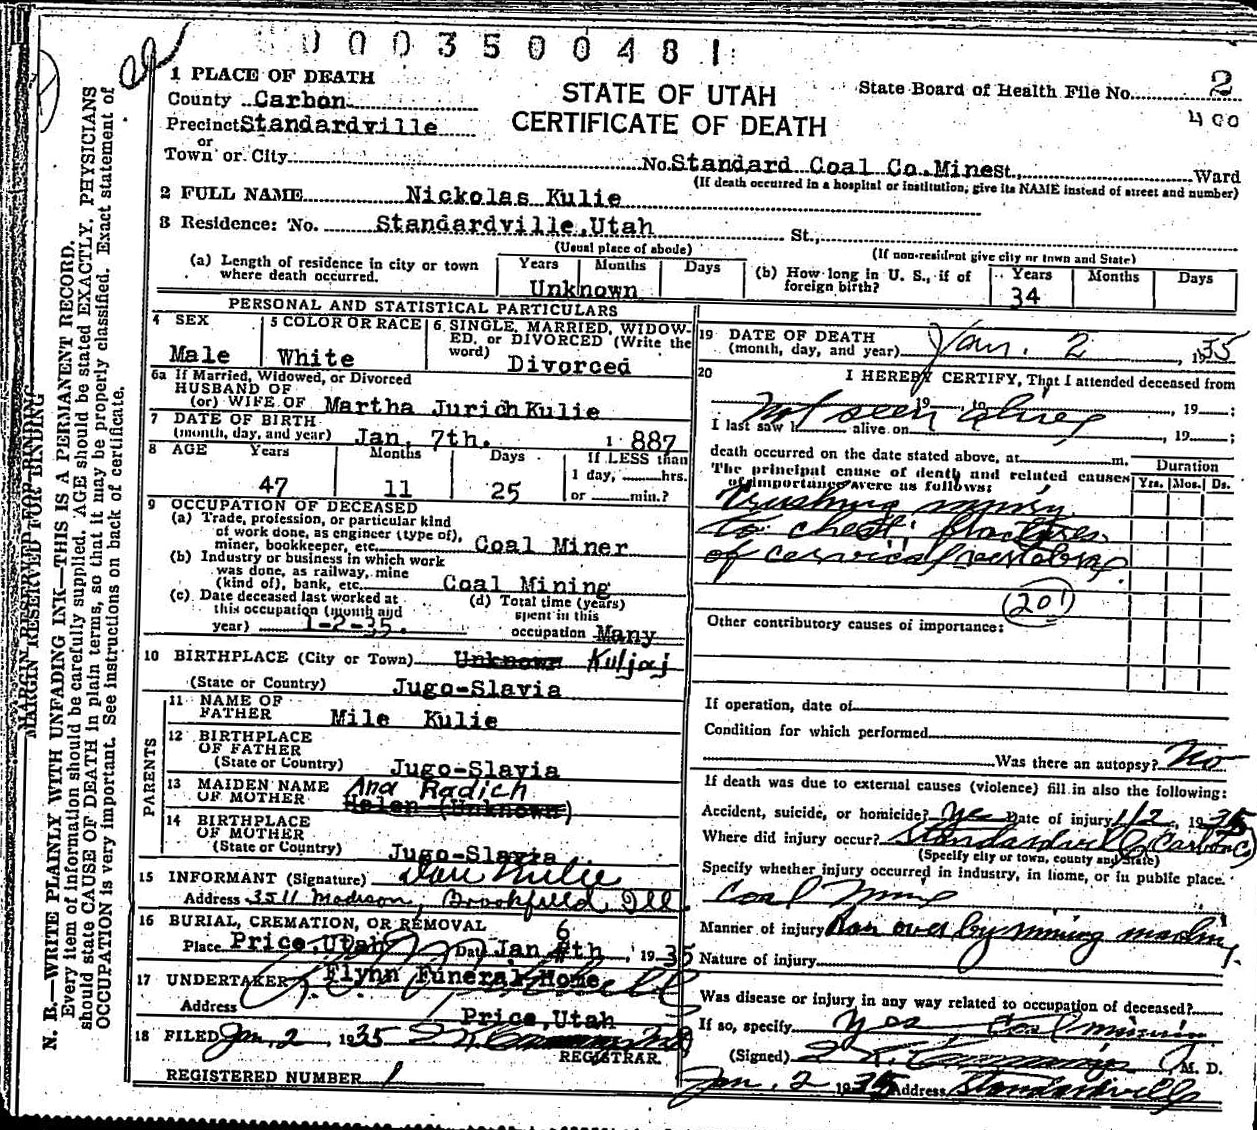 0003500481
1 PLACE OF DEATH
County Carbon
Precinct Standardville
or
Town or City
STATE OF UTAH
CERTIFICATE OF DEATH
State Board of Health File No. 2
400
No. Standard Coal Co. Mine St., Ward
(If death occurred in a hospital or institution, give its NAME instead of street and number)
2 FULL NAME Nickolas Kulie
3 Residence: No. Standardville, Utah St.,
(Usual place of abode) (If non-resident give city or town and State)
(a) Length of residence in city or town where death occurred. Years Months Days
Unknown
(b) How long in U. S., if of foreign birth? Years Months Days
34
PERSONAL AND STATISTICAL PARTICULARS
4 SEX
Male
5 COLOR OR RACE
White
6 SINGLE, MARRIED, WIDOW-
ED, or DIVORCED (Write the
word) Divorced
6a If Married, Widowed, or Divorced
HUSBAND OF
(or) WIFE OF Martha Jurich Kulie
7 DATE OF BIRTH
(month, day, and year) Jan, 7th. 1887
8 AGE Years Months Days If LESS than
47 11 25
1 day, hrs.
or min.?
9 OCCUPATION OF DECEASED
(a) Trade, profession, or particular kind
of work done, as engineer (type of),
miner, bookkeeper, etc. Coal Miner
(b) Industry or business in which work
was done, as railway, mine
(kind of), bank, etc. Coal Mining
(c) Date deceased last worked at
this occupation (month and
year) 1-2-35.
(d) Total time (years)
spent in this
occupation Many
10 BIRTHPLACE (City or Town) Unknown Kuljaj
(State or Country) Jugo-Slavia
PARENTS
11 NAME OF
FATHER Mile Kulie
12 BIRTHPLACE
OF FATHER
(State or Country) Jugo-Slavia
13 MAIDEN NAME
OF MOTHER Ana Radich
Helen (Unknown)
14 BIRTHPLACE
OF MOTHER
(State or Country) Jugo-Slavia
15 INFORMANT (Signature) Dan Kulie
Address 3511 Madison, Brookfield, Ill.
16 BURIAL, CREMATION, OR REMOVAL
Place Price, Utah Date Jan 6 th, 1935
17 UNDERTAKER Flynn Funeral Home
Address Price, Utah
18 FILED Jan. 2, 1935
REGISTRAR.
REGISTERED NUMBER 1
19 DATE OF DEATH
(month, day, and year) Jan. 2, 1935
20 I HEREBY CERTIFY, That I attended deceased from
19 to , 19 ;
Not seen alive
I last saw h alive on , 19 ;
death occurred on the date stated above, at m.
The principal cause of death and related causes
of importance were as follows:
Duration
Yrs. Mos. Ds.
Crushing injury
to chest; fractures
of cervical vertebrae.
(201)
Other contributory causes of importance:
If operation, date of
Condition for which performed
Was there an autopsy? No
If death was due to external causes (violence) fill in also the following:
Accident, suicide, or homicide? Yes Date of injury 1/2, 1935
Where did injury occur? Standardville Carbon Co
(Specify city or town, county and State)
Specify whether injury occurred in industry, in home, or in public place.
Coal Mine
Manner of injury Ran over by mining machine
Nature of injury
Was disease or injury in any way related to occupation of deceased?
If so, specify Yes Coal mining
(Signed) M. D.
Jan. 2 1935 Address Standardville
MARGIN RESERVED FOR BINDING
N. B.—WRITE PLAINLY WITH UNFADING INK—THIS IS A PERMANENT RECORD.
Every item of information should be carefully supplied. AGE should be stated EXACTLY. PHYSICIANS
should state CAUSE OF DEATH in plain terms, so that it may be properly classified. Exact statement of
OCCUPATION is very important. See instructions on back of certificate.